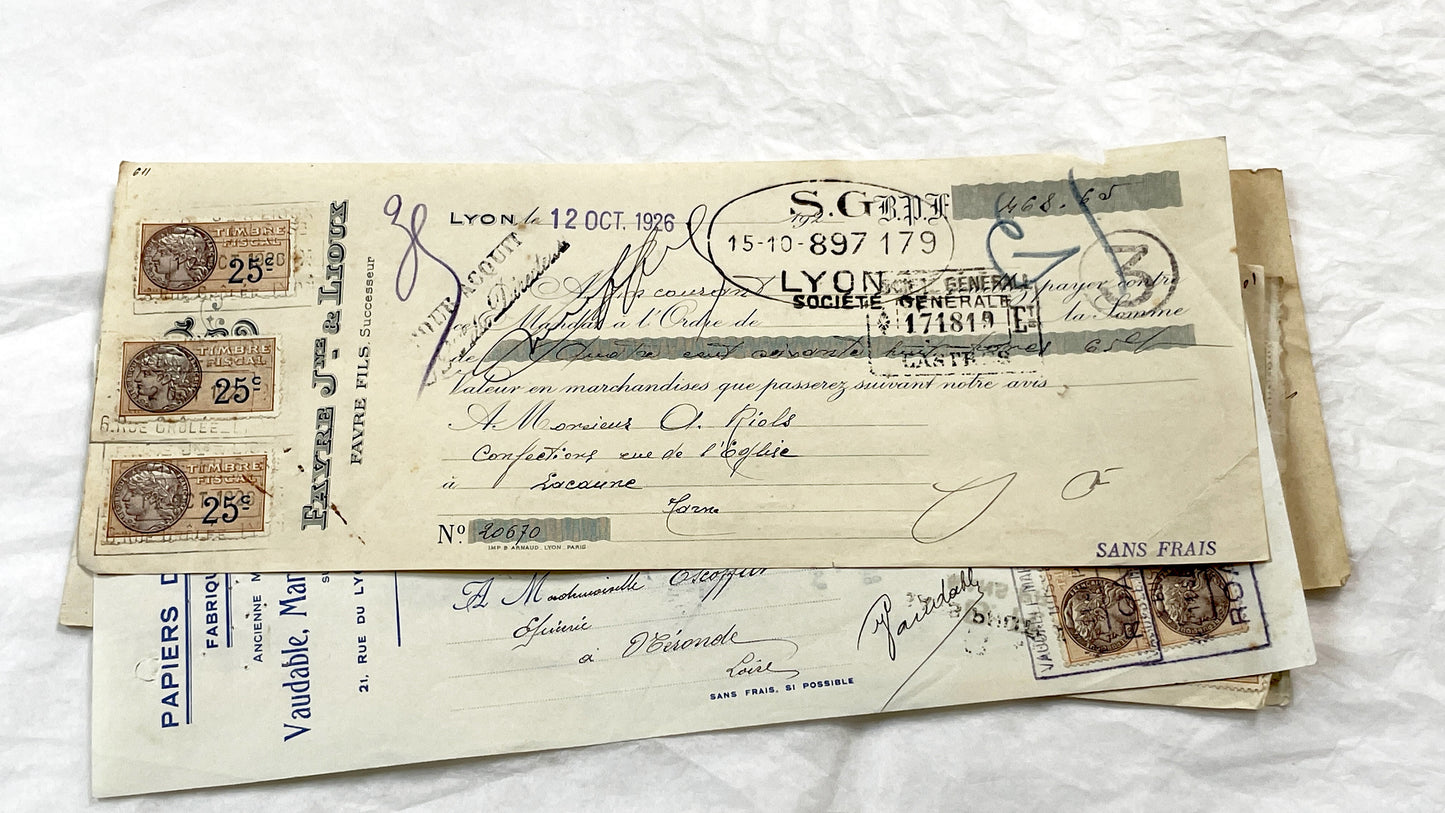 611
TIMBRE
FISCAL
25c
TIMBRE
FISCAL
25c
6.RUE GROLÉE
TIMBRE
FISCAL
25c
FAVRE JNE & LIOUX
FAVRE FILS, Successeur
LYON, le 12 OCT. 1926 192
B.P.F 468.65
POUR ACQUIT
S.G
15-10-897 179
LYON
SOCIÉTÉ GÉNÉRALE
SOCIÉTÉ GÉNÉRALE
171819 Et
CASTRES
3
courant payer contre
Mandat à l'Ordre de la Somme
de Quatre cent soixante huit francs 65 ct
Valeur en marchandises que passerez suivant notre avis
A Monsieur A. Riols
Confections rue de l'Eglise
à Lacaune
Tarn
No. 20670
IMP. B. ARNAUD. LYON. PARIS
SANS FRAIS
PAPIERS D
FABRIQU
ANCIENNE M
Vaudable, Mar
21, RUE DU LYO
A Mademoiselle Escoffier
Epicerie
à Néronde
Loire
SANS FRAIS, SI POSSIBLE
Vaudable